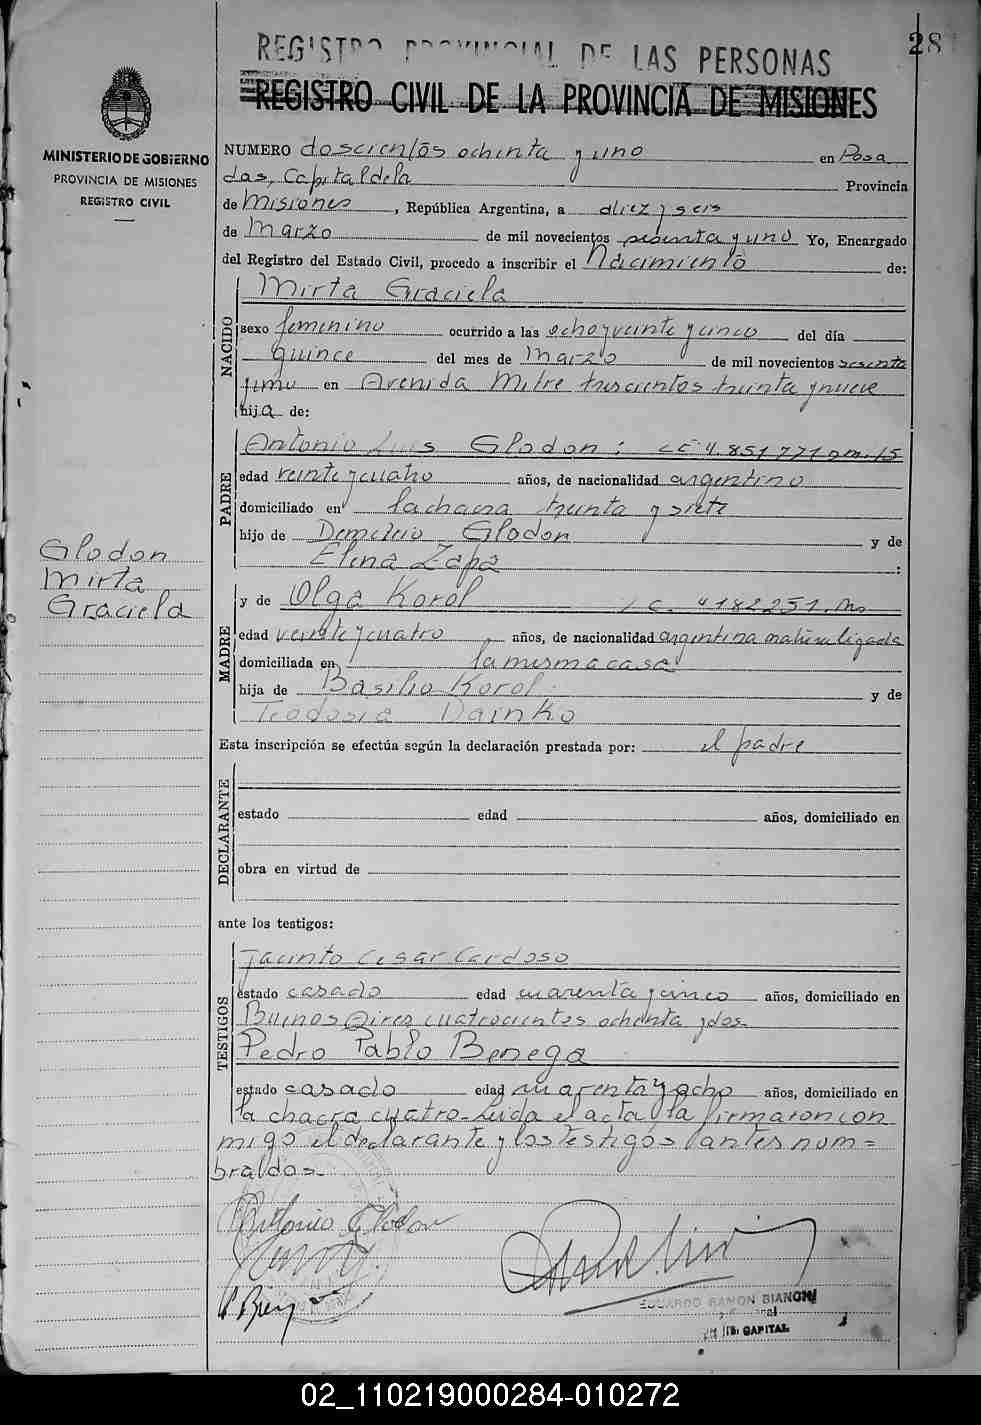 28
REGISTRO PROVINCIAL DE LAS PERSONAS
REGISTRO CIVIL DE LA PROVINCIA DE MISIONES
MINISTERIO DE GOBIERNO
PROVINCIA DE MISIONES
REGISTRO CIVIL
NUMERO doscientos ochenta y uno en Posa
das, Capital de la Provincia
de Misiones, República Argentina, a diez y seis
de Marzo de mil novecientos sesenta y uno Yo, Encargado
del Registro del Estado Civil, procedo a inscribir el Nacimiento de:
NACIDO
Mirta Graciela
sexo femenino ocurrido a las ocho y veinte y cinco del día
quince del mes de Marzo de mil novecientos sesenta
y uno en Avenida Mitre trescientos treinta y nueve
hija de:
PADRE
Antonio Luis Glodon: 4.851.771
edad veinte y cuatro años, de nacionalidad argentino
domiciliado en la chacra treinta y siete
hijo de Demetrio Glodon y de
Elena Zapa :
Glodon
Mirta
Graciela
MADRE
y de Olga Korol 4182251
edad veinte y cuatro, años, de nacionalidad argentina naturalizada
domiciliada en la misma casa
hija de Basilio Korol y de
Teodosia Dainko
Esta inscripción se efectúa según la declaración prestada por: el padre
DECLARANTE
estado edad años, domiciliado en
obra en virtud de
ante los testigos:
TESTIGOS
Jacinto Cesar Cardoso
estado casado edad cuarenta y cinco años, domiciliado en
Buenos Aires cuatrocientos ochenta y dos.
Pedro Pablo Benega
estado casado edad cuarenta y ocho años, domiciliado en
la chacra cuatro. Leida el acta la firmaron con
migo el declarante y los testigos antes nom=
brados.
Antonio Glodon
EDUARDO RAMON BIANCHI
CAPITAL
02_110219000284-010272